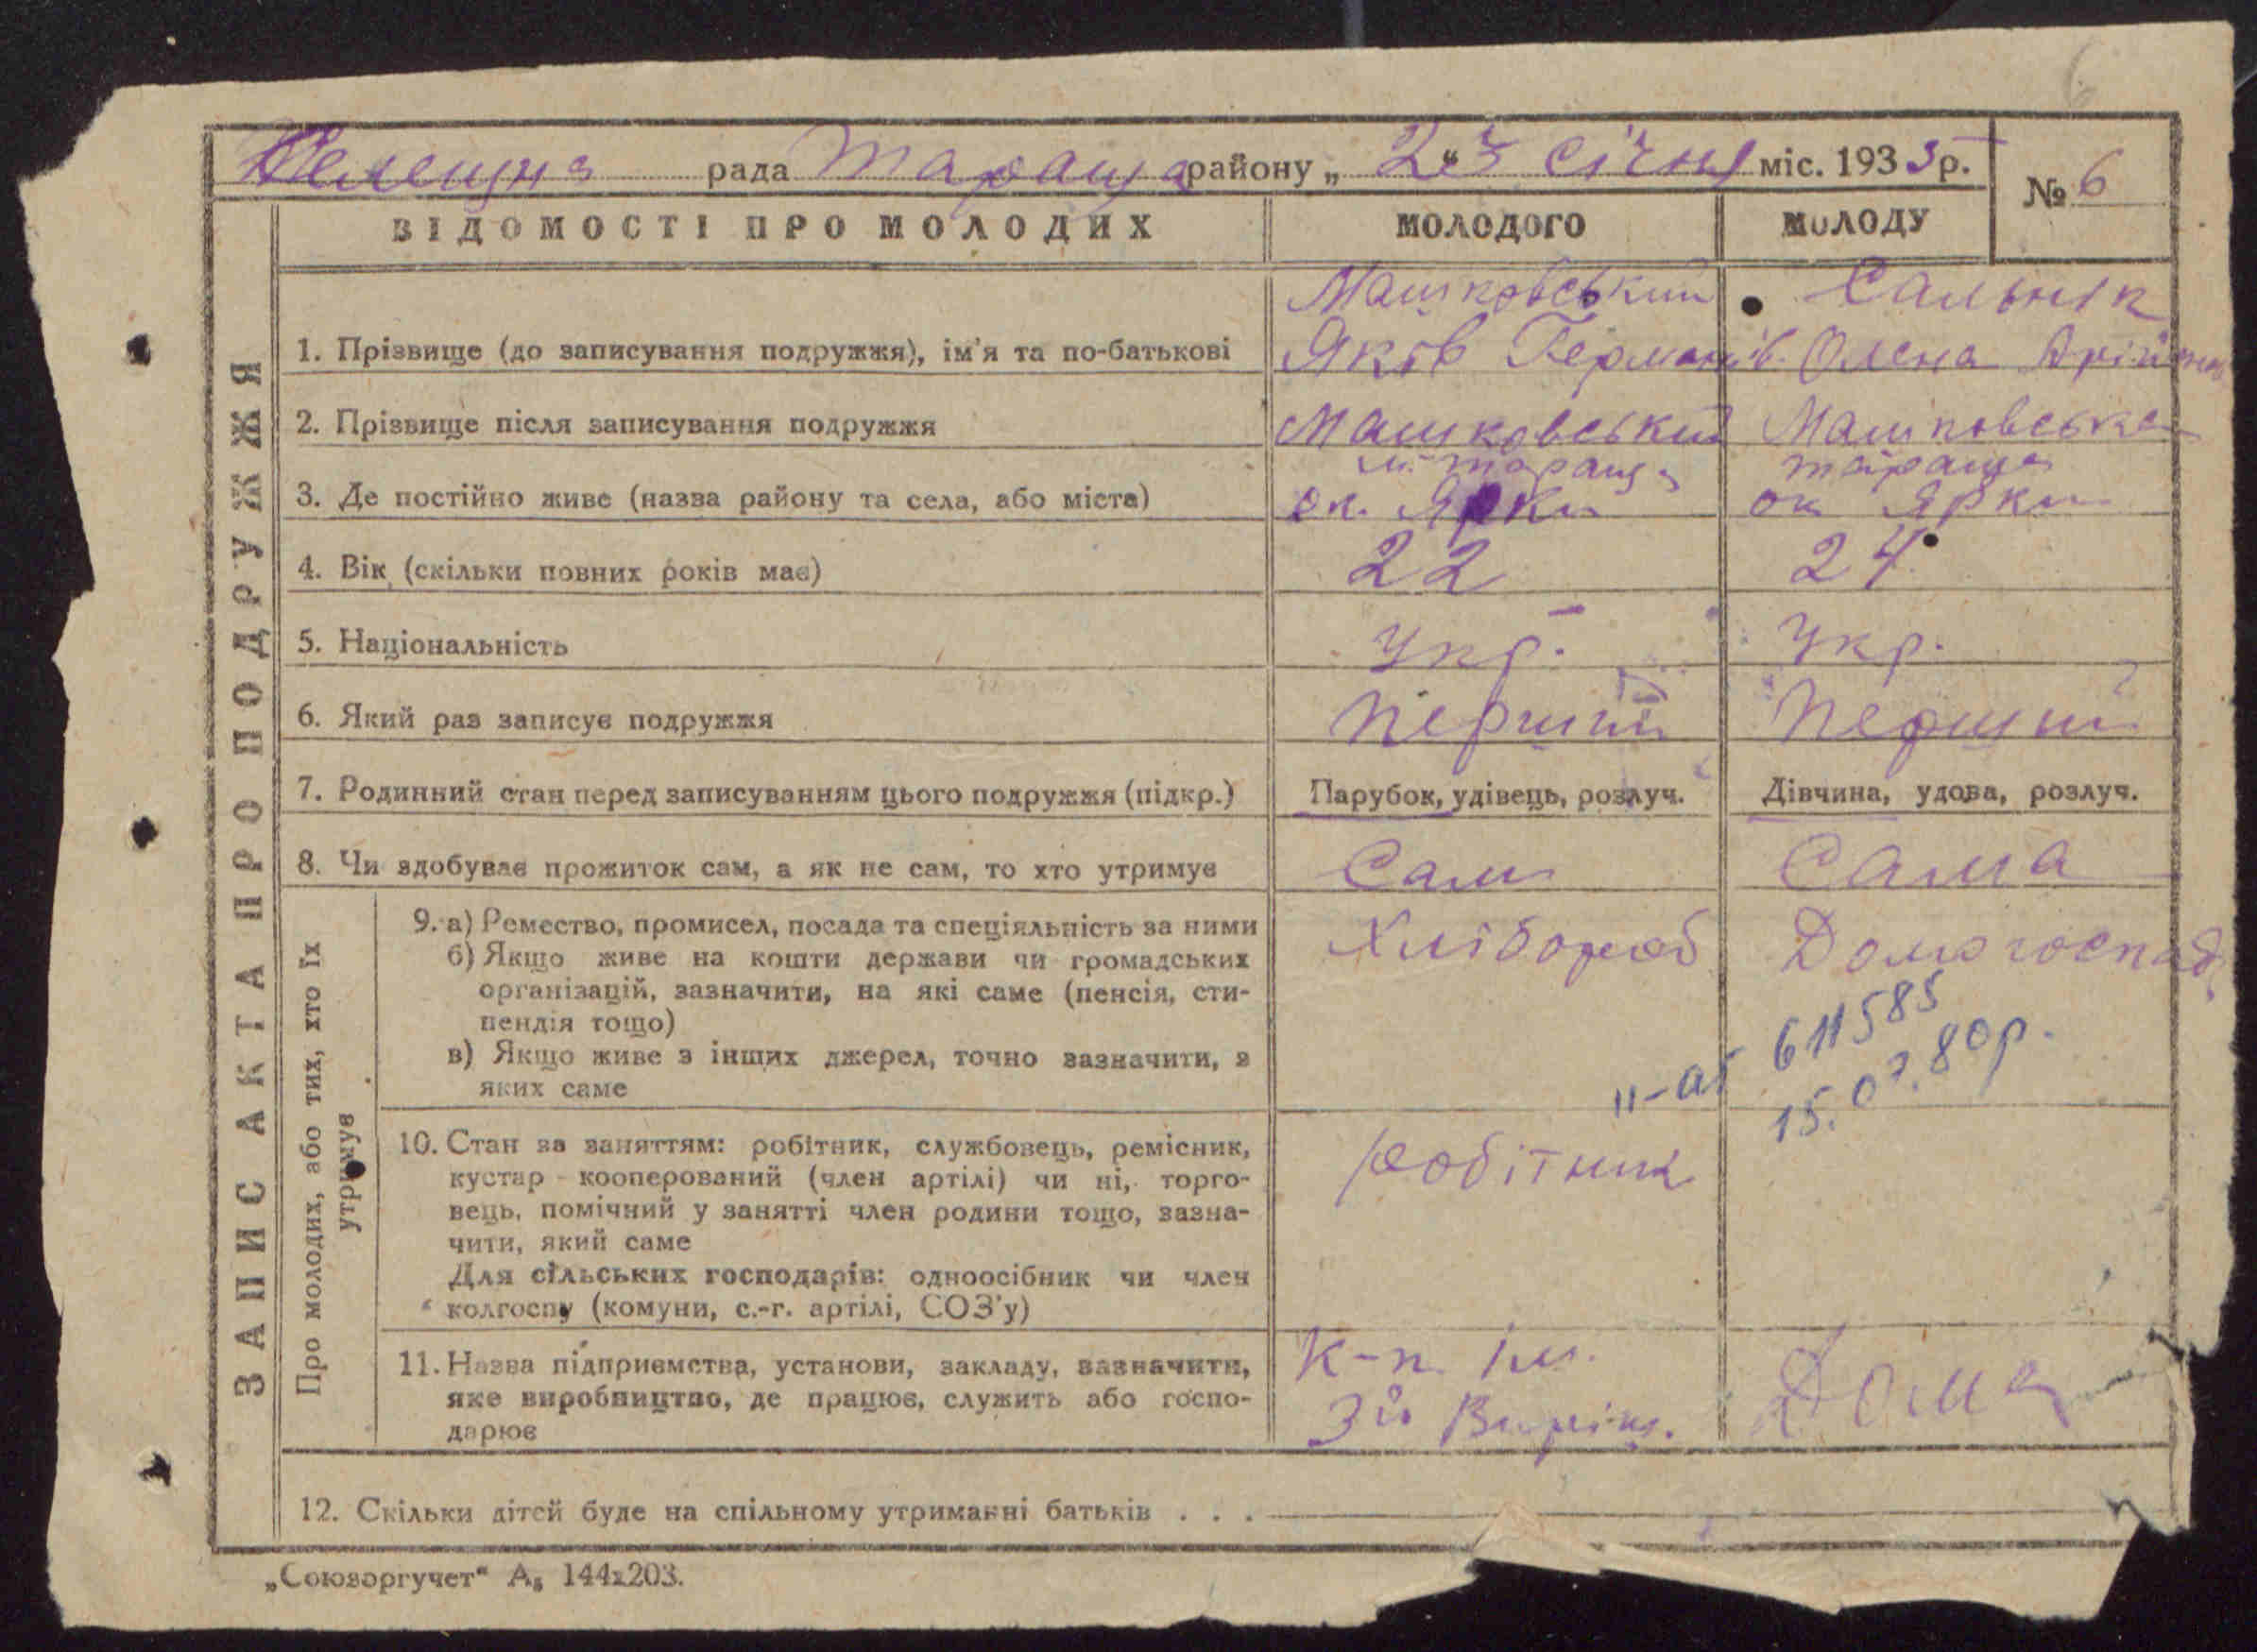 6
рада Тараща району „ 2"3 січня міс. 1933 р.
№ 6
ВІДОМОСТІ ПРО МОЛОДИХ
МОЛОДОГО
МОЛОДУ
ЗАПИС АКТА ПРО ПОДРУЖЖЯ
1. Прізвище (до записування подружжя), ім'я та по-батькові
Машковський
Яків Германів.
Сальнік
Олена
2. Прізвище після записування подружжя
Машковський
Машковська
3. Де постійно живе (назва району та села, або міста)
м. Тараща
ок. Ярки
Тараща
ок Ярки
4. Вік (скільки повних років має)
22
24
5. Національність
Укр.
Укр.
6. Який раз записує подружжя
Перший
Перший
7. Родинний стан перед записуванням цього подружжя (підкр.)
Парубок, удівець, розлуч.
Дівчина, удова, розлуч.
8. Чи здобуває прожиток сам, а як не сам, то хто утримує
Сам
Сама
Про молодих, або тих, хто їх
утримує
9. а) Ремество, промисел, посада та спеціяльність за ними
б) Якщо живе на кошти держави чи громадських
організацій, зазначити, на які саме (пенсія, сти-
пендія тощо)
в) Якщо живе з інших джерел, точно зазначити, з
яких саме
Хлібороб
Домогоспод.
611585
15.07.80р.
10. Стан за заняттям: робітник, службовець, ремісник,
кустар - кооперований (член артілі) чи ні, торго-
вець, помічний у занятті член родини тощо, зазна-
чити, який саме
Для сільських господарів: одноосібник чи член
колгоспу (комуни, с.-г. артілі, СОЗ'у)
робітник
11. Назва підприємства, установи, закладу, зазначити,
яке виробництво, де працює, служить або госпо-
дарює
к-п. ім.
Дома
12. Скільки дітей буде на спільному утриманні батьків . . .
„Союзоргучет" А₅ 144x203.